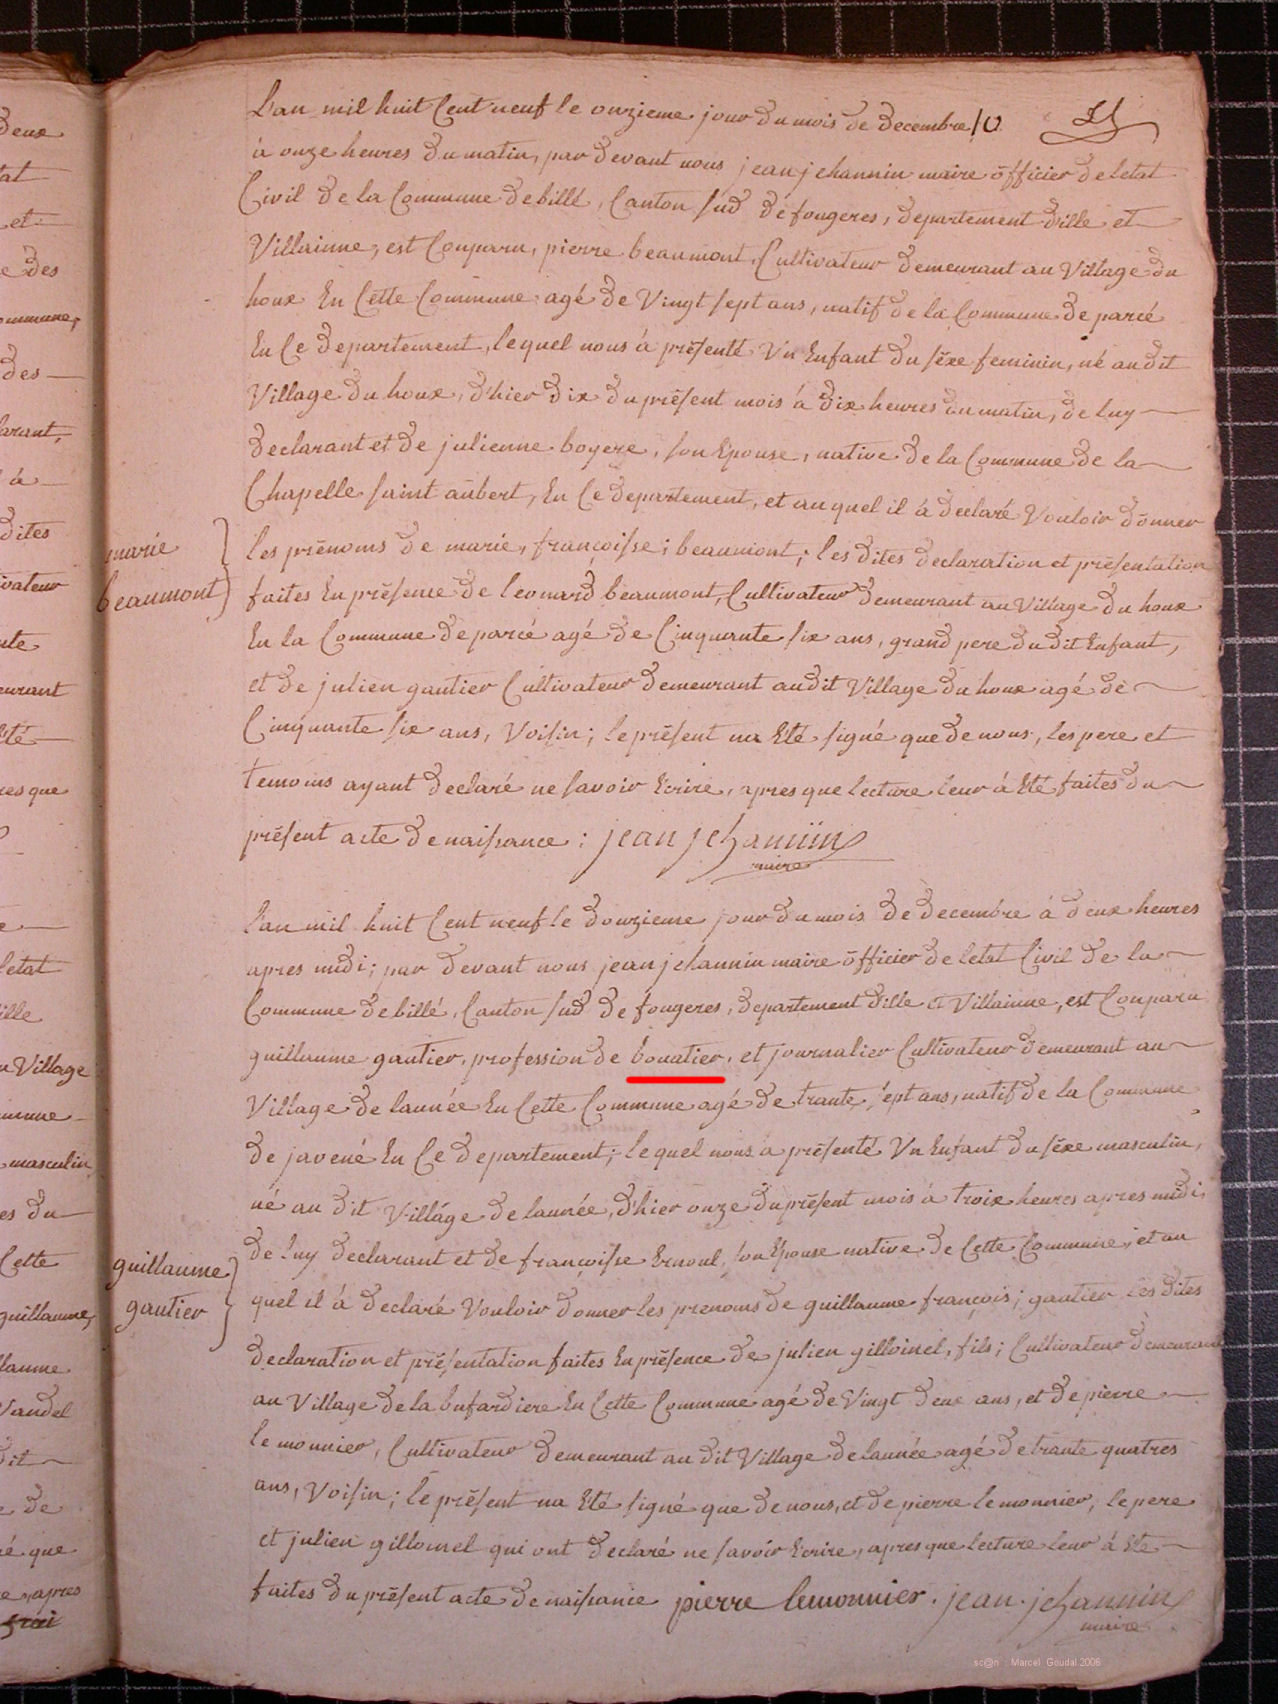 L'an mil huit Cent neuf le onzieme jour du mois de decembre
à onze heures du matin, par devant nous jean jehannin maire officier de letat
Civil de la Commune de billé, Canton sud de fougeres, departement dille et
Villainne, est Comparu, pierre beaumont, Cultivateur demeurant au Village du
houx En Cette Commune agé de Vingt sept ans, natif de la Commune de parcé
En Ce departement, lequel nous à présenté Un Enfant du séxe feminin, né au dit
Village du houx, d'hier dix du présent mois à dix heures du matin, de luy
declarant et de julienne boyere, son Epouse, native de la Commune de la
Chapelle saint aubert, En Ce departement, et au quel il à declaré Vouloir donner
les prénoms de marie, françoisse; beaumont; les dites declaration et présentation
marie
beaumont
faites En présence de leonard beaumont, Cultivateur demeurant au Village du houx
En la Commune de parcé agé de Cinquante six ans, grand pere du dit Enfant,
et de julien gautier Cultivateur demeurant audit Village du houx agé de
Cinquante six ans, Voisin; le présent na Eté signé que de nous, les pere et
temoins ayant declaré ne savoir Ecrire, apres que lecture leur à Eté faites du
présent acte de naissance : jean jehannin
maire
l'an mil huit Cent neuf le douzieme jour du mois de decembre à deux heures
apres midi; par devant nous jean jehannin maire officier de letat Civil de la
Commune de billé, Canton sud de fougeres, departement dille et Villainne, est Comparu
guillaume gautier, profession de bouatier, et journalier Cultivateur demeurant au
Village de launée En Cette Commune agé de trante sept ans, natif de la Commune
de javené En Ce departement; lequel nous à présenté Un Enfant du séxe masculin,
né au dit Village de launée, d'hier onze du présent mois à troix heures apres midi,
de luy declarant et de françoisse Ernoul, son Epouse native de Cette Commune, et au
guillaume
gautier
quel il à declaré Vouloir donner les prenoms de guillaume françois; gautier les dites
declaration et présentation faites En présence de julien gilloinel, fils; Cultivateur demeurant
au Village de la bufardiere En Cette Commune agé de Vingt deux ans, et de pierre
le monnier, Cultivateur demeurant au dit Village de launée agé de trante quatres
ans, Voisin; le présent na Eté signé que de nous, et de pierre le monnier, le pere
et julien gilloinel qui ont declaré ne savoir Ecrire, apres que lecture leur à Eté
faites du présent acte de naissance pierre lemonnier. jean. jehannin
maire
sc@n : Marcel Goudal.2006